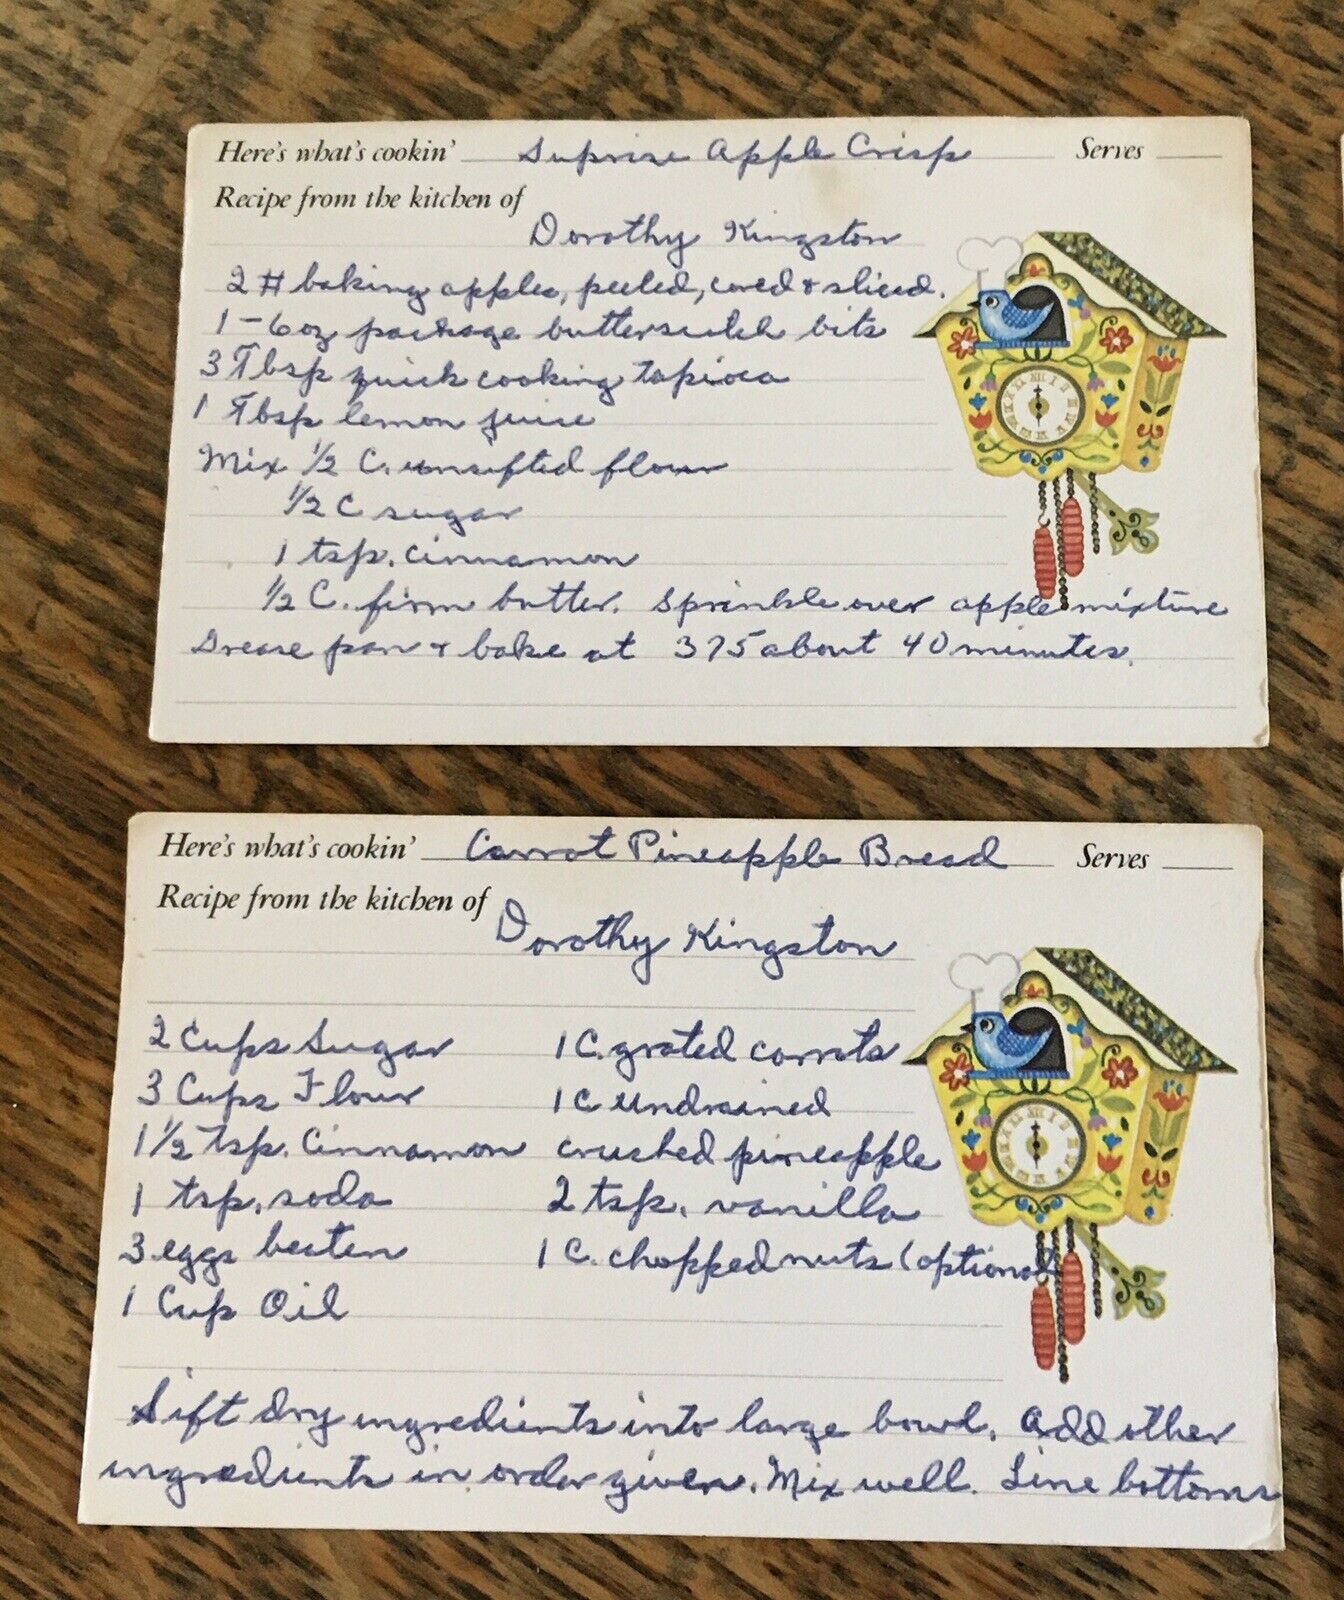 Here's what's cookin' Suprise Apple Crisp Serves
Recipe from the kitchen of
Dorothy Kingston
2 # baking apples, peeled, cored & sliced.
1-6oz package butterscutch bits
3 Tbsp quick cooking tapioca
1 Tbsp lemon juice
Mix 1/2 C. unsifted flour
1/2 C sugar
1 tsp. cinnamon
1/2 C. firm butter. Sprinkle over apple mixture
Grease pan & bake at 375 about 40 minutes.
Here's what's cookin' Carrot Pineapple Bread Serves
Recipe from the kitchen of
Dorothy Kingston
2 Cups Sugar
3 Cups Flour
1 1/2 tsp. Cinnamon
1 tsp. soda
3 eggs beaten
1 Cup Oil
1 C. grated carrots
1 C undrained
crushed pineapple
2 tsp. vanilla
1 C. chopped nuts (optional
Sift dry ingredients into large bowl. Add other
ingredients in order given. Mix well. Line bottoms